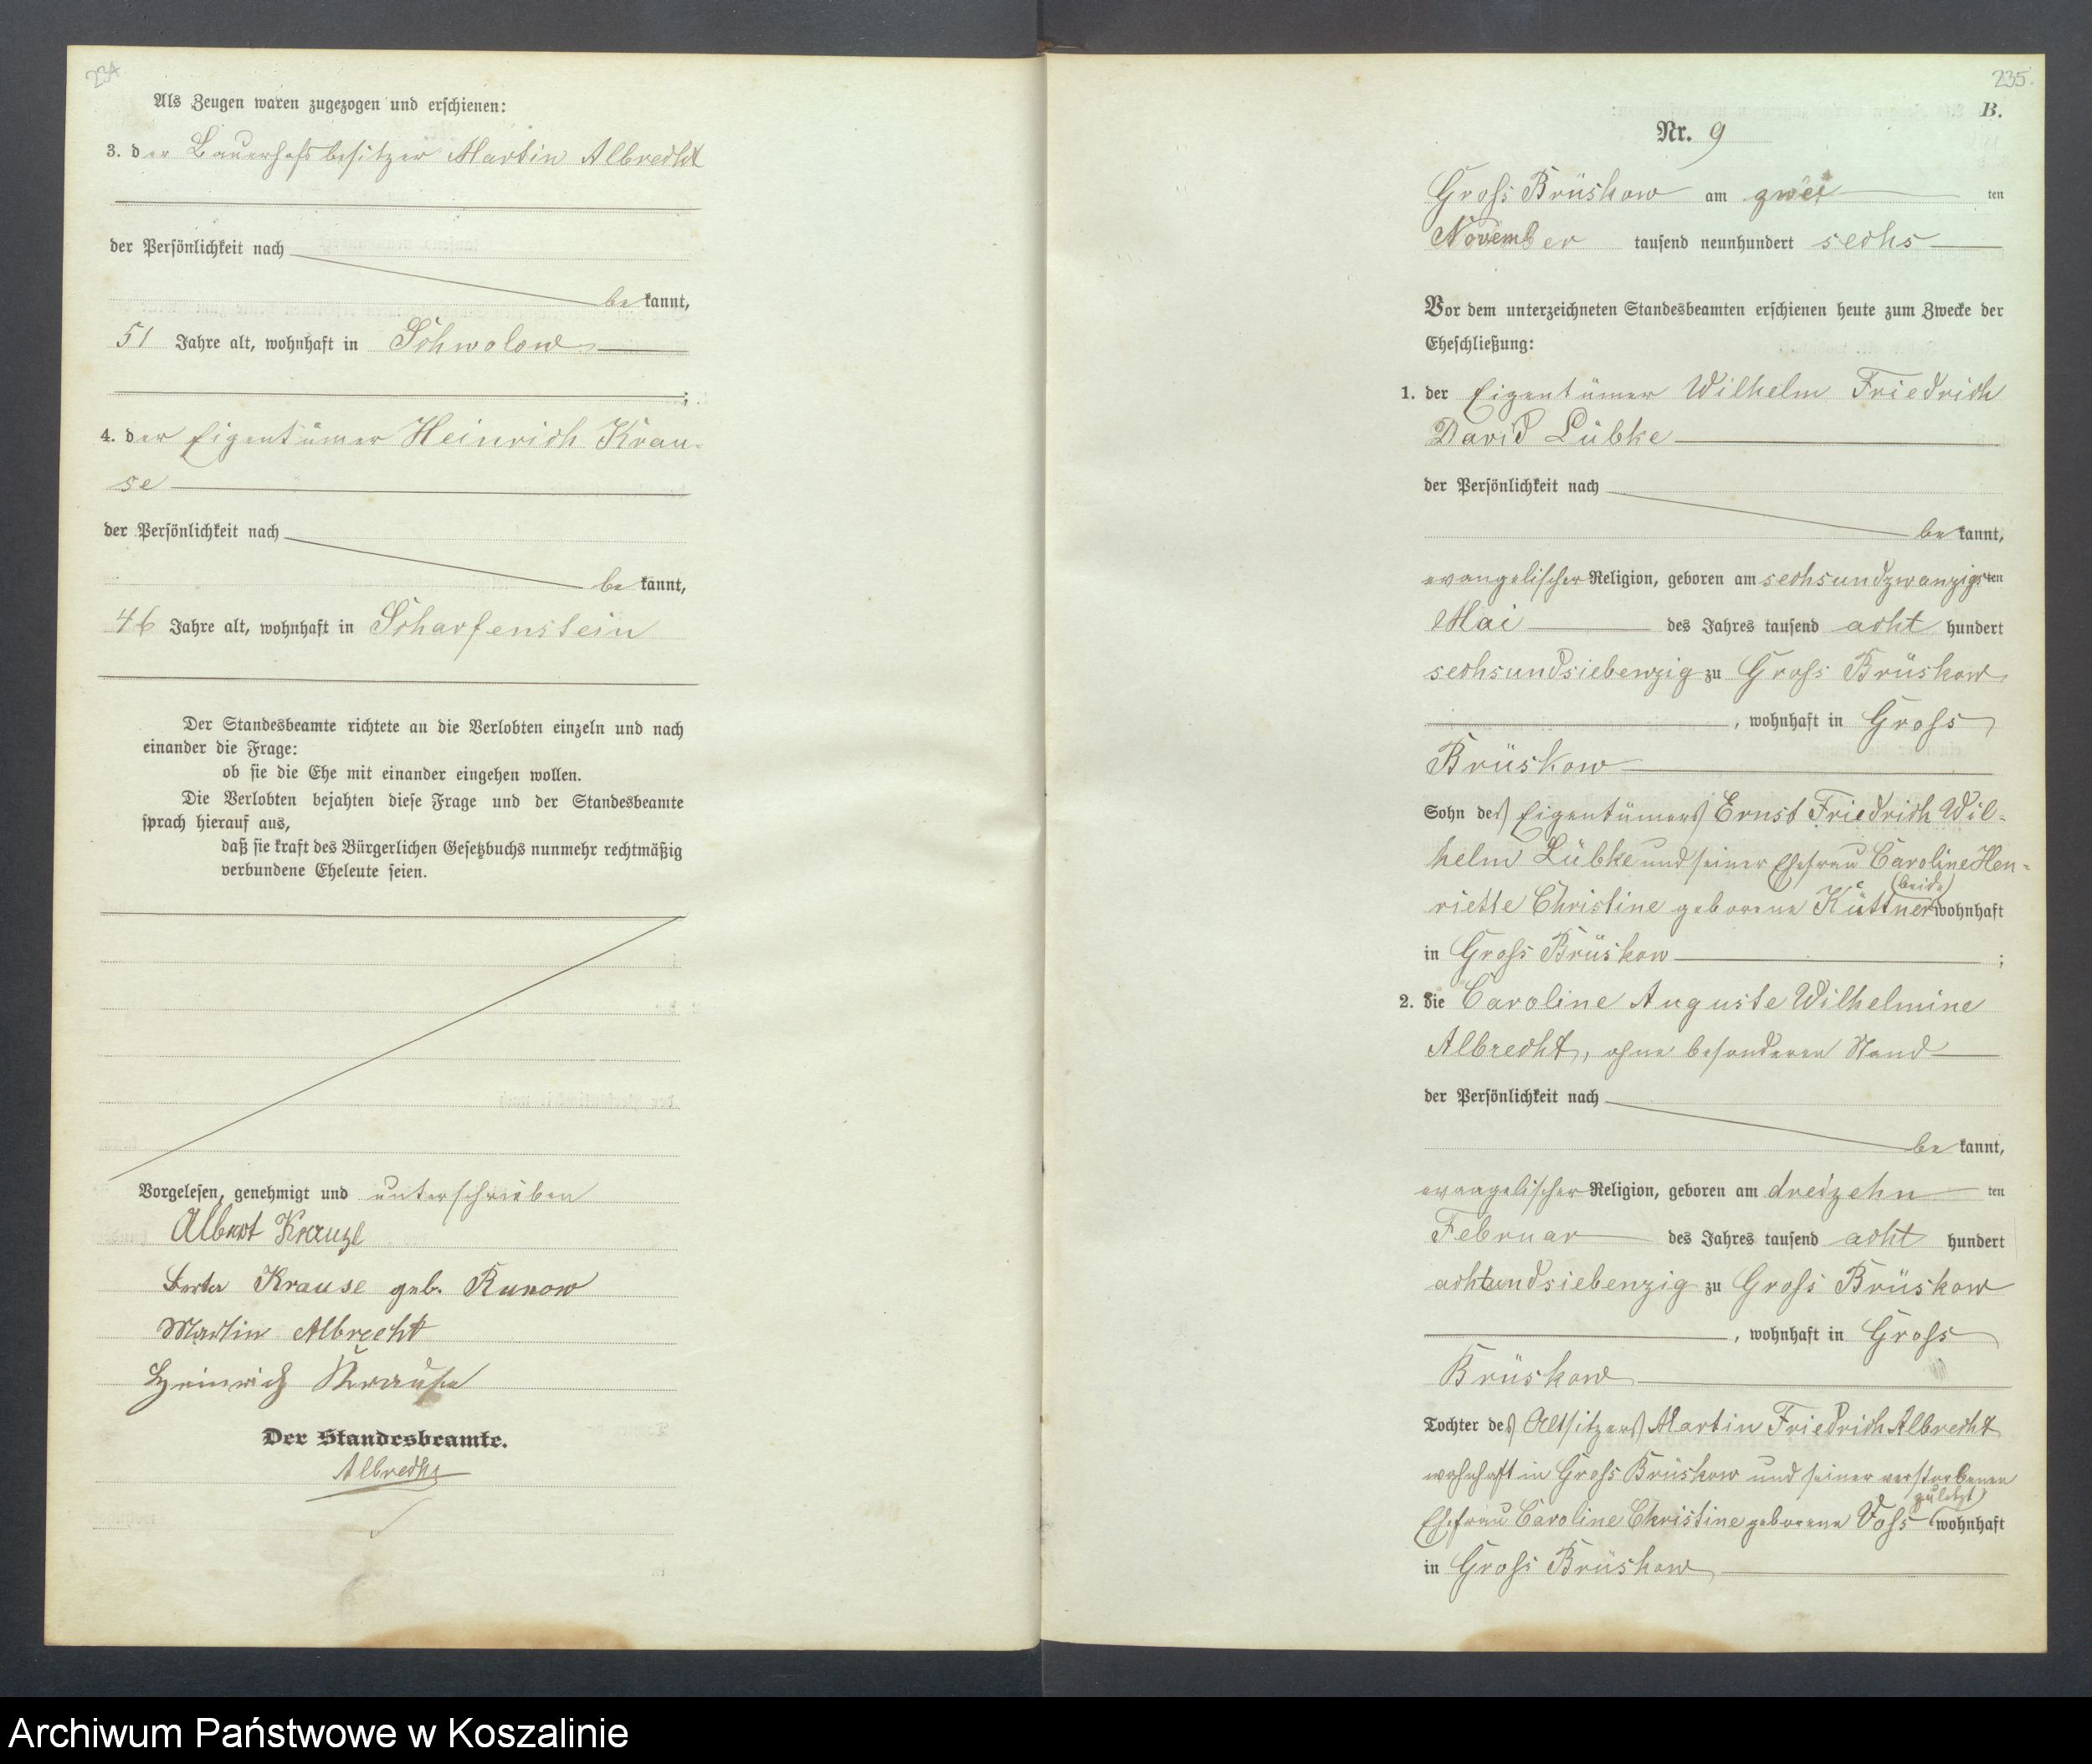 234
Als Zeugen waren zugezogen und erschienen:
3. der Bauerhofsbesitzer Martin Albrecht
der Persönlichkeit nach
be kannt,
51 Jahre alt, wohnhaft in Schwolow
;
4. der Eigentümer Heinrich Krau-
se
der Persönlichkeit nach
be kannt,
46 Jahre alt, wohnhaft in Scharfenstein
Der Standesbeamte richtete an die Verlobten einzeln und nach
einander die Frage:
ob sie die Ehe mit einander eingehen wollen.
Die Verlobten bejahten diese Frage und der Standesbeamte
sprach hierauf aus,
daß sie kraft des Bürgerlichen Gesetzbuchs nunmehr rechtmäßig
verbundene Eheleute seien.
Vorgelesen, genehmigt und unterschrieben
Albert Krause
Berta Krause geb. Runow
Martin Albrecht
Heinrich Krause
Der Standesbeamte.
Albrecht
235.
B.
Nr. 9
Groß Brüskow am zwei ten
November tausend neunhundert sechs
Vor dem unterzeichneten Standesbeamten erschienen heute zum Zwecke der
Eheschließung:
1. der Eigentümer Wilhelm Friedrich
David Lübke
der Persönlichkeit nach
be kannt,
evangelischer Religion, geboren am sechsundzwanzigsten
Mai des Jahres tausend acht hundert
sechsundsiebenzig zu Groß Brüskow
, wohnhaft in Groß
Brüskow
Sohn des Eigentümers Ernst Friedrich Wil-
helm Lübke und seiner Ehefrau Caroline Hen-
riette Christine geborene Küttner (beide) wohnhaft
in Groß Brüskow ;
2. die Caroline Auguste Wilhelmine
Albrecht, ohne besonderen Stand
der Persönlichkeit nach
be kannt,
evangelischer Religion, geboren am dreizehn ten
Februar des Jahres tausend acht hundert
achtundsiebenzig zu Groß Brüskow
, wohnhaft in Groß
Brüskow
Tochter des Altsitzers Martin Friedrich Albrecht
wohnhaft in Groß Brüskow und seiner verstorbenen
Ehefrau Caroline Christine geborene Voß (zuletzt) wohnhaft
in Groß Brüskow
Archiwum Państwowe w Koszalinie